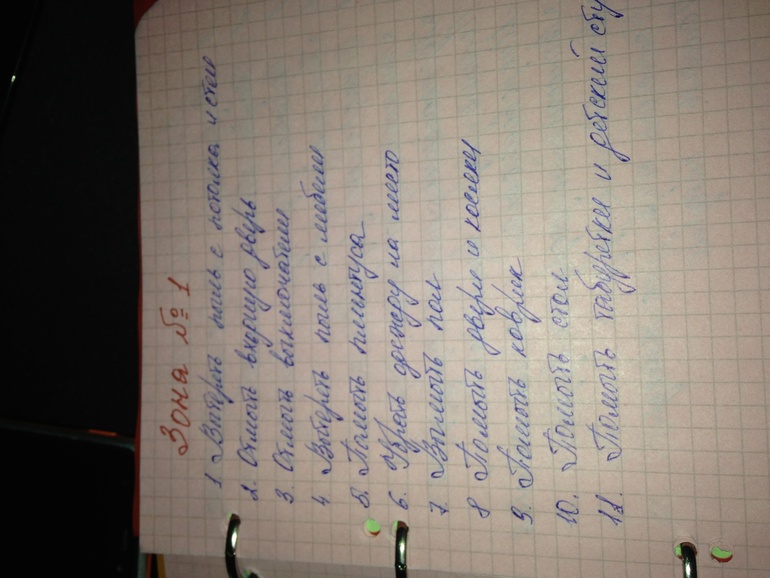 Зона № 1
1. Вытереть пыль с потолка и стен
2. Отмыть входную дверь
3. Отмыть выключатели
4 Вытереть пыль с мебели
5. Помыть плинтуса
6. Убрать одежду на место
7. Вымыть пол
8 Помыть двери и косяки
9. Помыть коврик
10. Помыть стол
11. Помыть табуретки и детский